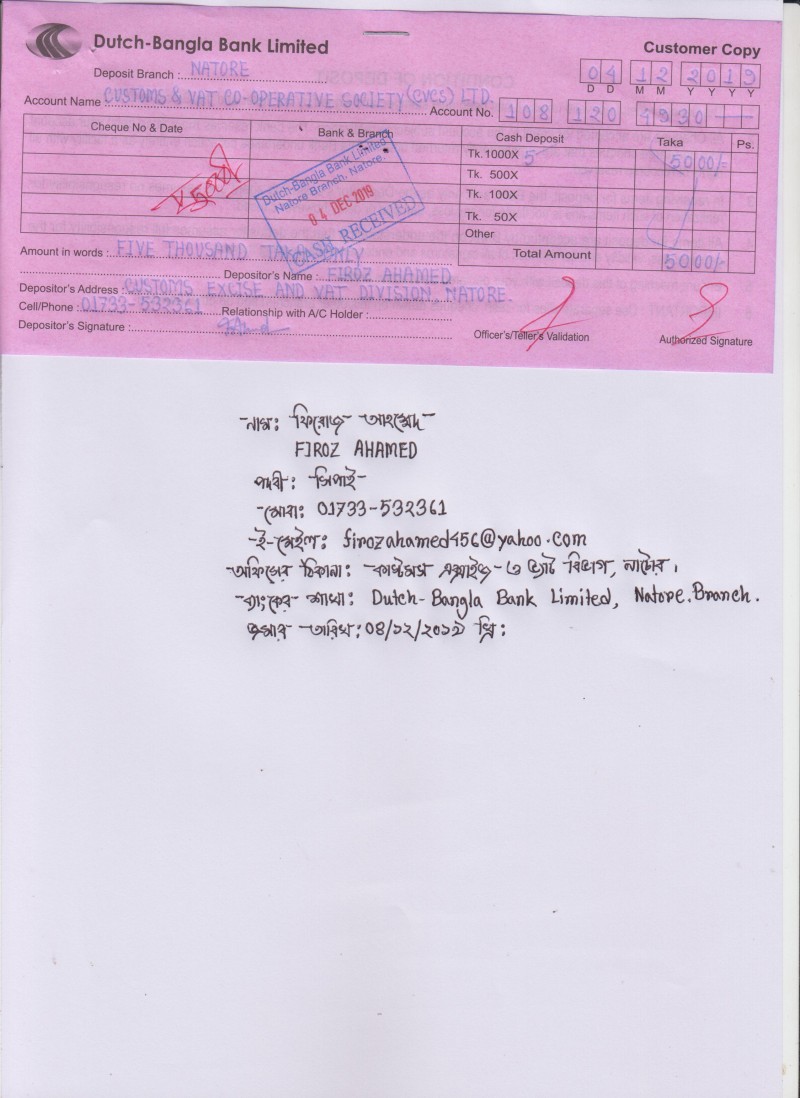 Dutch-Bangla Bank Limited
Customer Copy
Deposit Branch : NATORE
04 12 2019
D D M M Y Y Y Y
Account Name CUSTOMS & VAT CO-OPERATIVE SOCIETY (CVCS) LTD.
Account No. 108 120 4930
Cheque No & Date
Bank & Branch
Cash Deposit
Taka
Ps.
Tk. 1000X 5 5000/-
Tk. 500X
Tk. 100X
Tk. 50X
Other
Total Amount 5000/-
5000/
Dutch-Bangla Bank Limited
Natore Branch, Natore.
04 DEC 2019
CASH RECEIVED
Amount in words : FIVE THOUSAND TAKA ONLY
Depositor's Name : FIROZ AHAMED
Depositor's Address : CUSTOMS, EXCISE AND VAT DIVISION, NATORE.
Cell/Phone : 01733-532361 Relationship with A/C Holder :
Depositor's Signature :
Officer's/Teller's Validation
Authorized Signature
নাম: ফিরোজ আহম্মেদ
FIROZ AHAMED
পদবী: সিপাই
মোবা: 01733-532361
ই-মেইল: firozahamed456@yahoo.com
অফিসের ঠিকানা: কাস্টমস এক্সাইজ ও ভ্যাট বিভাগ, নাটোর।
ব্যাংকের শাখা: Dutch-Bangla Bank Limited, Natore.Branch.
জমার তারিখ: ০৪/১২/২০১৯ খ্রি: